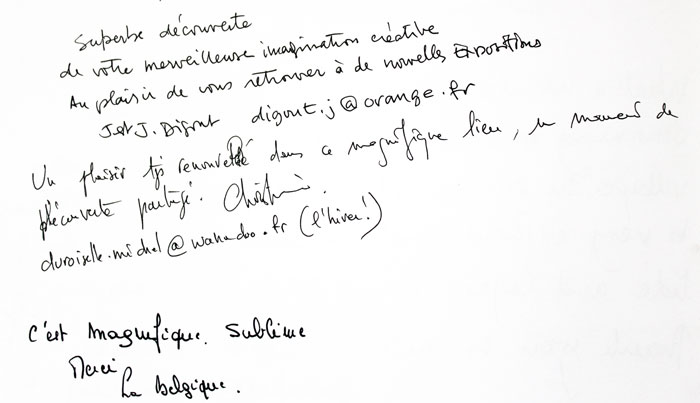 Superbe découverte
de votre merveilleuse imagination créative
Au plaisir de vous retrouver à de nouvelles Expositions
J et J. Digout digout.j@orange.fr
Un plaisir tjs renouvelé dans ce magnifique lieu, un moment de
découverte partagé.
duroiselle.michel@wanadoo.fr (l'hiver!)
C'est magnifique. Sublime
Merci
La Belgique.